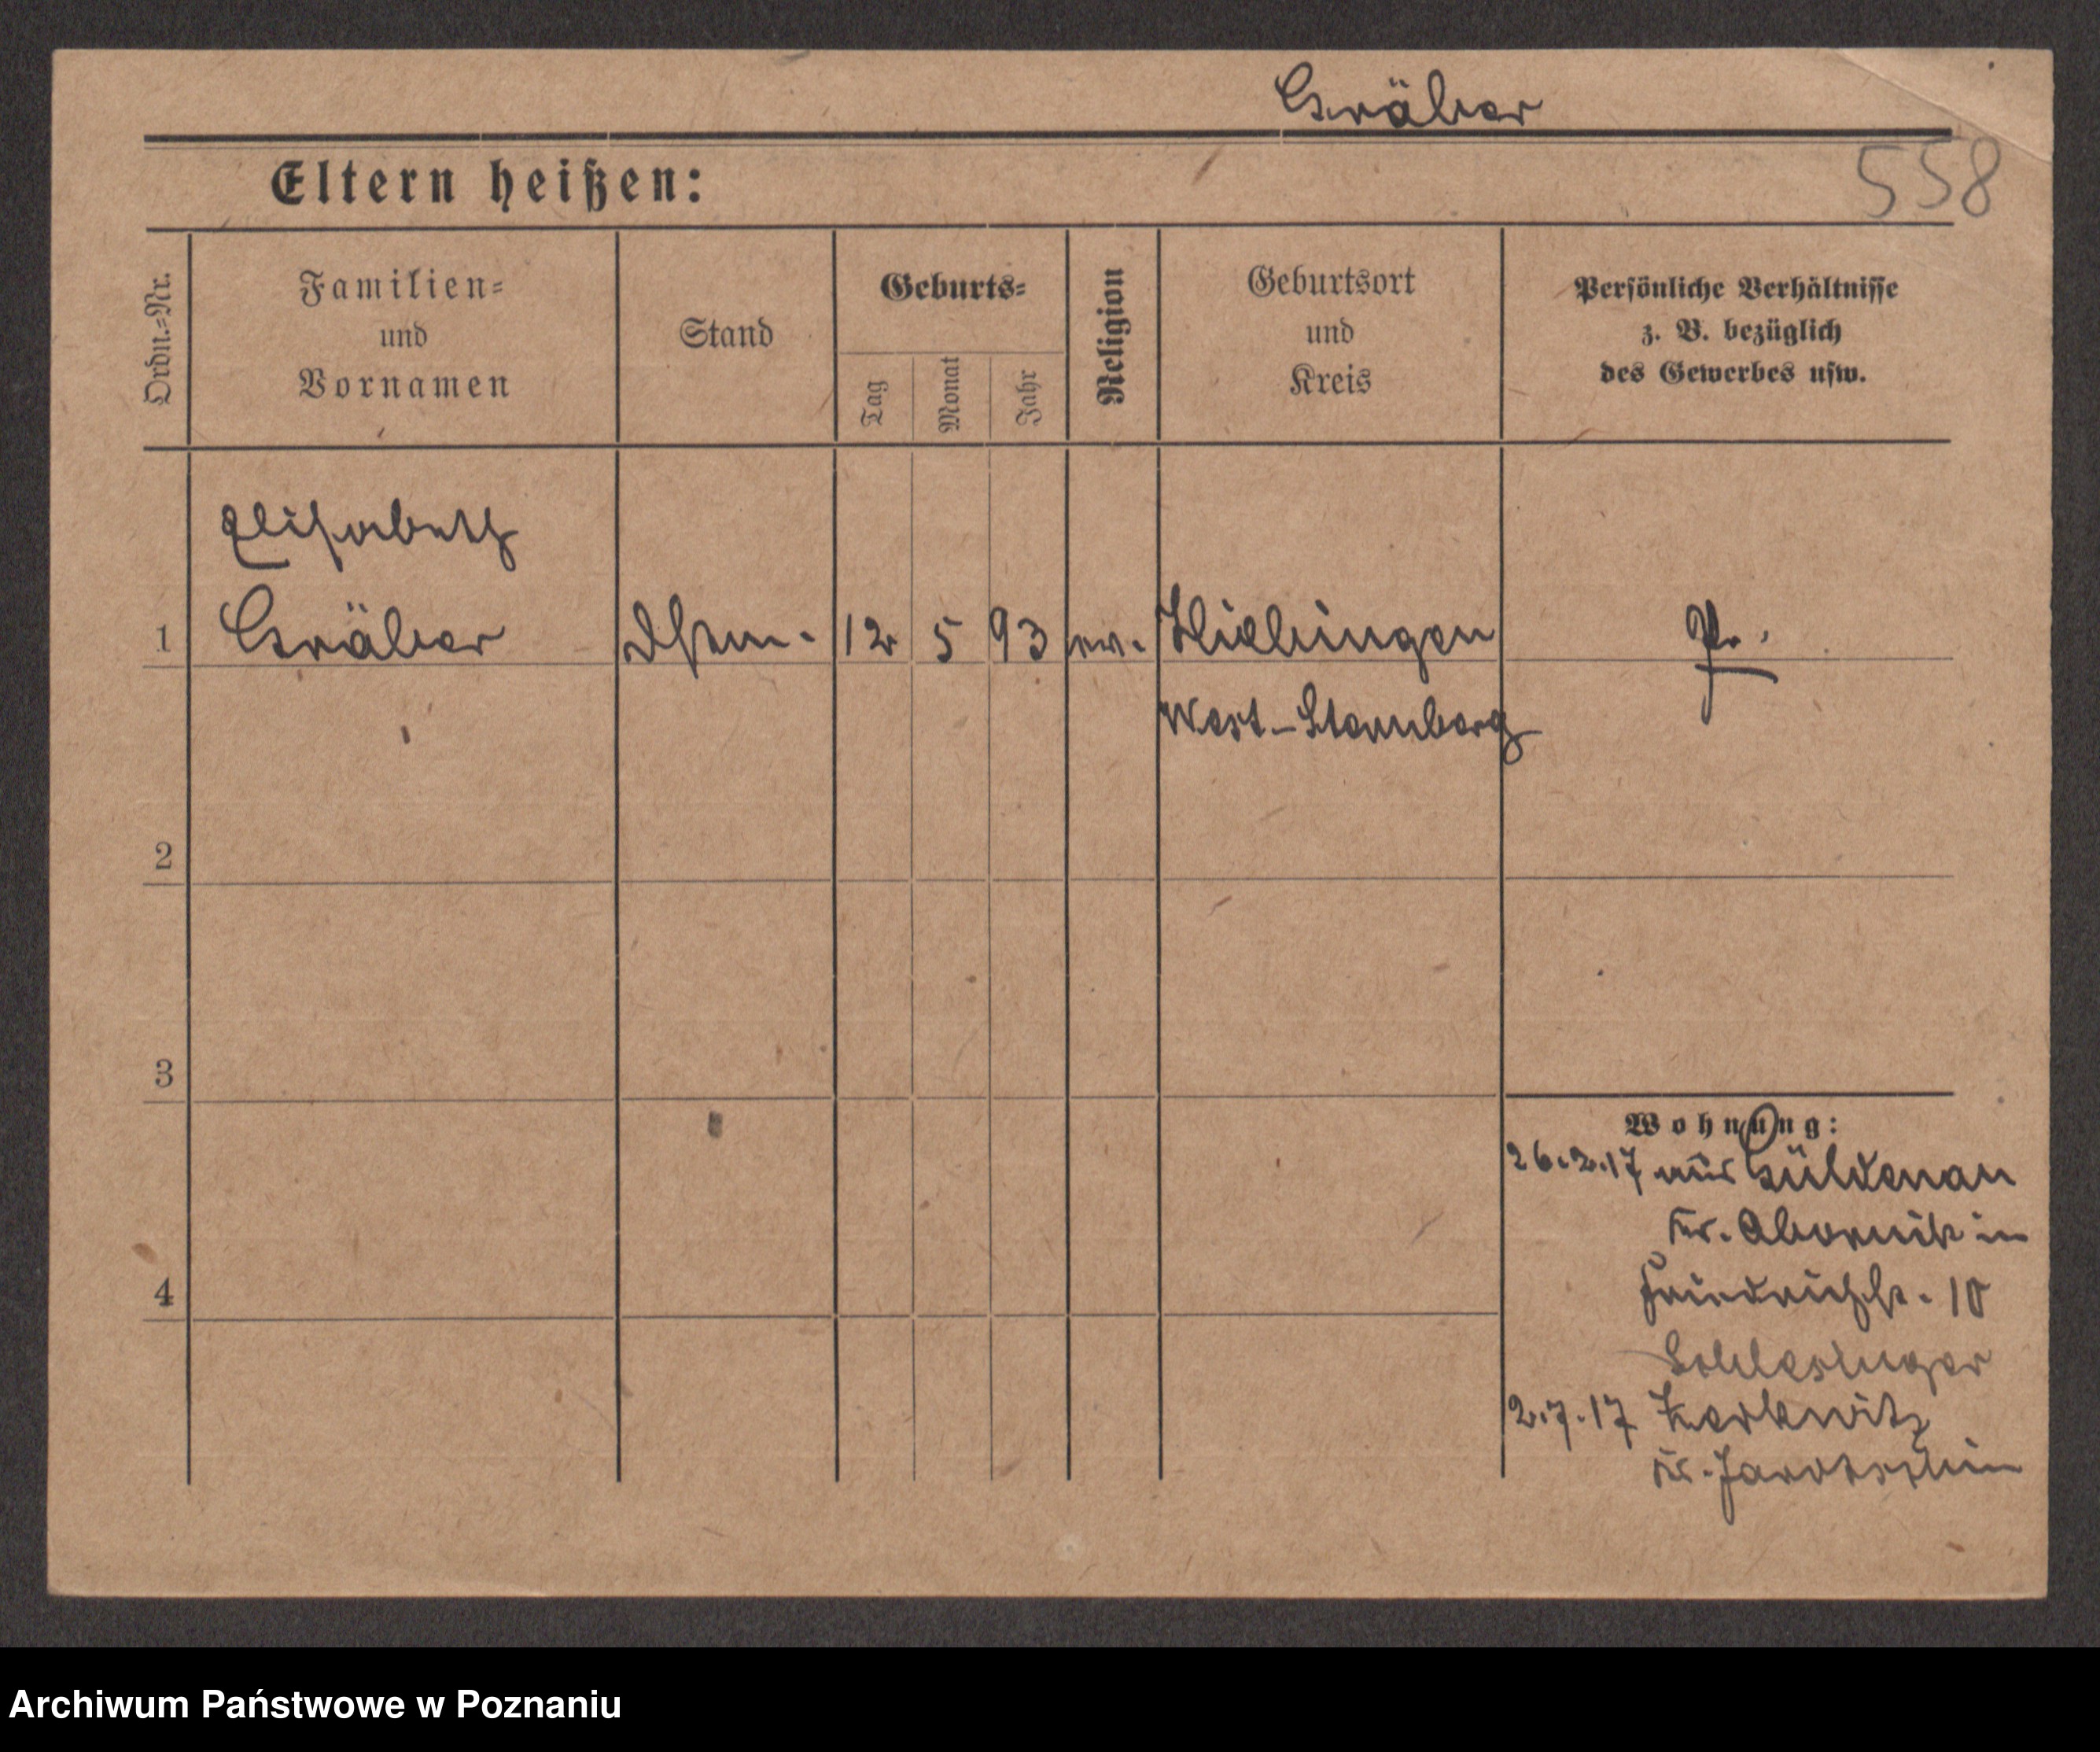 Gräber
Eltern heißen:
558
Ordn.=Nr.
Familien=
und
Vornamen
Stand
Geburts=
Tag
Monat
Jahr
Religion
Geburtsort
und
Kreis
Persönliche Verhältnisse
z. B. bezüglich
des Gewerbes usw.
Elisabeth
1
Gräber
12
5
93
ev.
Pr.
West-Sternberg
2
3
4
Wohnung:
26.2.17 aus Güldenau
Kr. Obornik in
Friedrichstr. 10
Schlesinger
2.7.17 Zerkwitz
Kr. Jarotschin
Archiwum Państwowe w Poznaniu